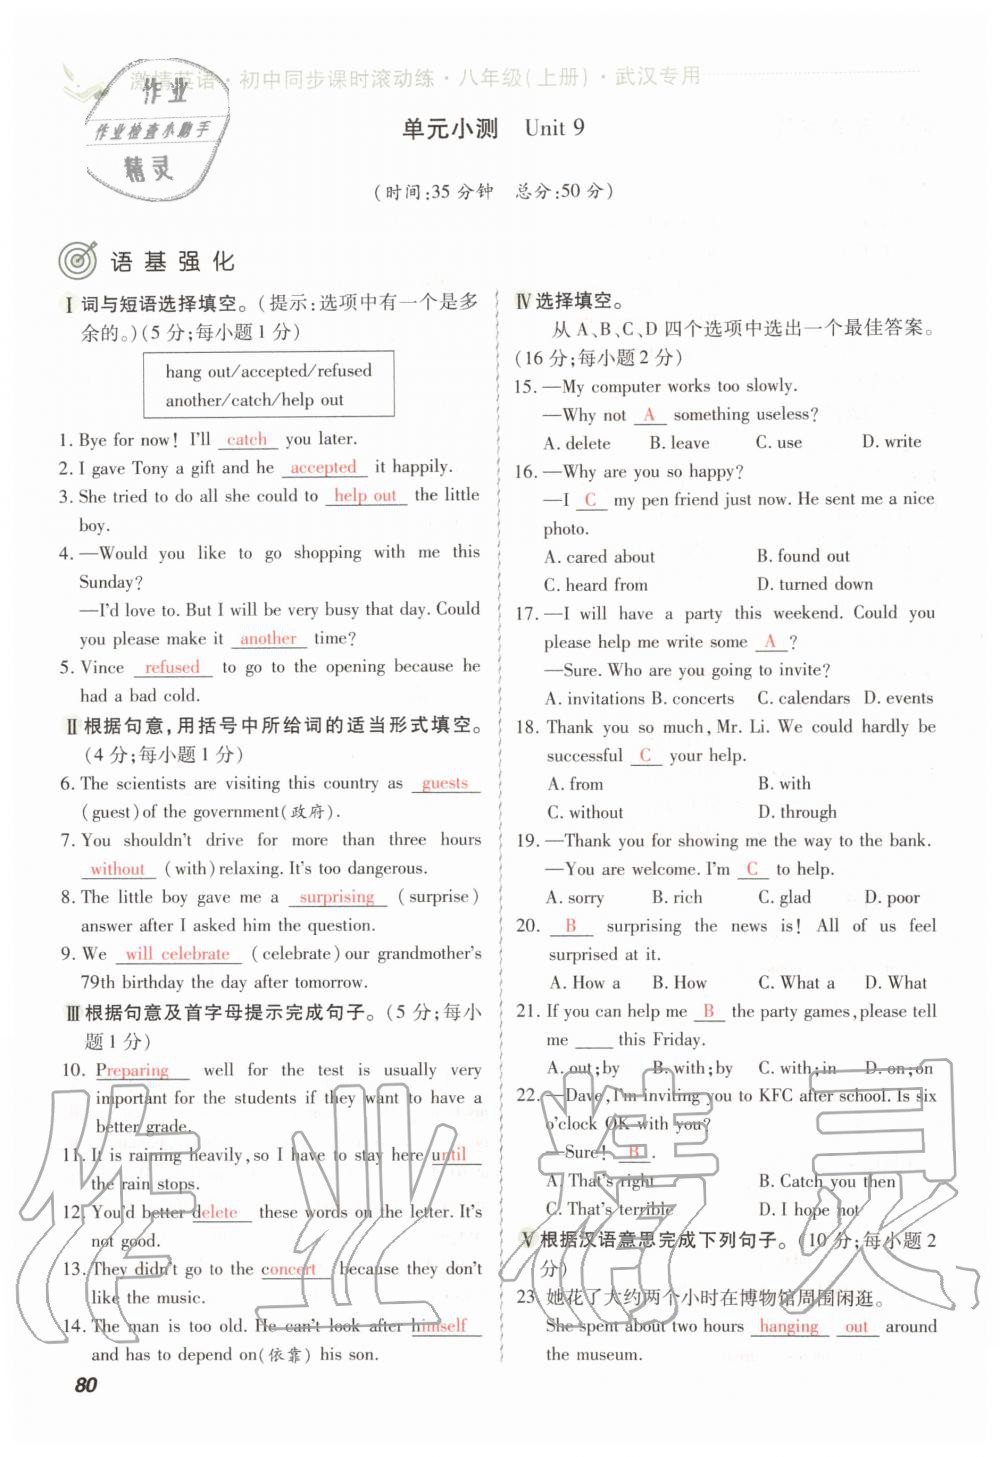 激情英语·初中同步课时滚动练·八年级(上册)·武汉专用
作业
作业检查小助手
精灵
单元小测 Unit 9
(时间:35 分钟 总分:50 分)
语基强化
Ⅰ 词与短语选择填空。(提示:选项中有一个是多
余的。)(5 分;每小题 1 分)
hang out/accepted/refused
another/catch/help out
1. Bye for now! I'll catch you later.
2. I gave Tony a gift and he accepted it happily.
3. She tried to do all she could to help out the little
boy.
4. —Would you like to go shopping with me this
Sunday?
—I'd love to. But I will be very busy that day. Could
you please make it another time?
5. Vince refused to go to the opening because he
had a bad cold.
Ⅱ 根据句意,用括号中所给词的适当形式填空。
(4 分;每小题 1 分)
6. The scientists are visiting this country as guests
(guest)of the government(政府).
7. You shouldn't drive for more than three hours
without (with)relaxing. It's too dangerous.
8. The little boy gave me a surprising (surprise)
answer after I asked him the question.
9. We will celebrate (celebrate)our grandmother's
79th birthday the day after tomorrow.
Ⅲ 根据句意及首字母提示完成句子。(5 分;每小
题 1 分)
10. Preparing well for the test is usually very
important for the students if they want to have a
better grade.
11. It is raining heavily,so I have to stay here until
the rain stops.
12. You'd better delete these words on the letter. It's
not good.
13. They didn't go to the concert because they don't
like the music.
14. The man is too old. He can't look after himself
and has to depend on(依靠) his son.
80
Ⅳ 选择填空。
从 A、B、C、D 四个选项中选出一个最佳答案。
(16 分;每小题 2 分)
15. —My computer works too slowly.
—Why not A something useless?
A. delete B. leave C. use D. write
16. —Why are you so happy?
—I C my pen friend just now. He sent me a nice
photo.
A. cared about B. found out
C. heard from D. turned down
17. —I will have a party this weekend. Could you
please help me write some A ?
—Sure. Who are you going to invite?
A. invitations B. concerts C. calendars D. events
18. Thank you so much, Mr. Li. We could hardly be
successful C your help.
A. from B. with
C. without D. through
19. —Thank you for showing me the way to the bank.
—You are welcome. I'm C to help.
A. sorry B. rich C. glad D. poor
20. B surprising the news is! All of us feel
surprised at it.
A. How a B. How C. What a D. What
21. If you can help me B the party games,please tell
me ____ this Friday.
A. out;by B. with;by C. with;in D. on;on
22. —Dave,I'm inviting you to KFC after school. Is six
o'clock OK with you?
—Sure! B .
A. That's right B. Catch you then
C. That's terrible D. I hope not
Ⅴ 根据汉语意思完成下列句子。(10 分;每小题 2
分)
23. 她花了大约两个小时在博物馆周围闲逛。
She spent about two hours hanging out around
the museum.
作业精灵